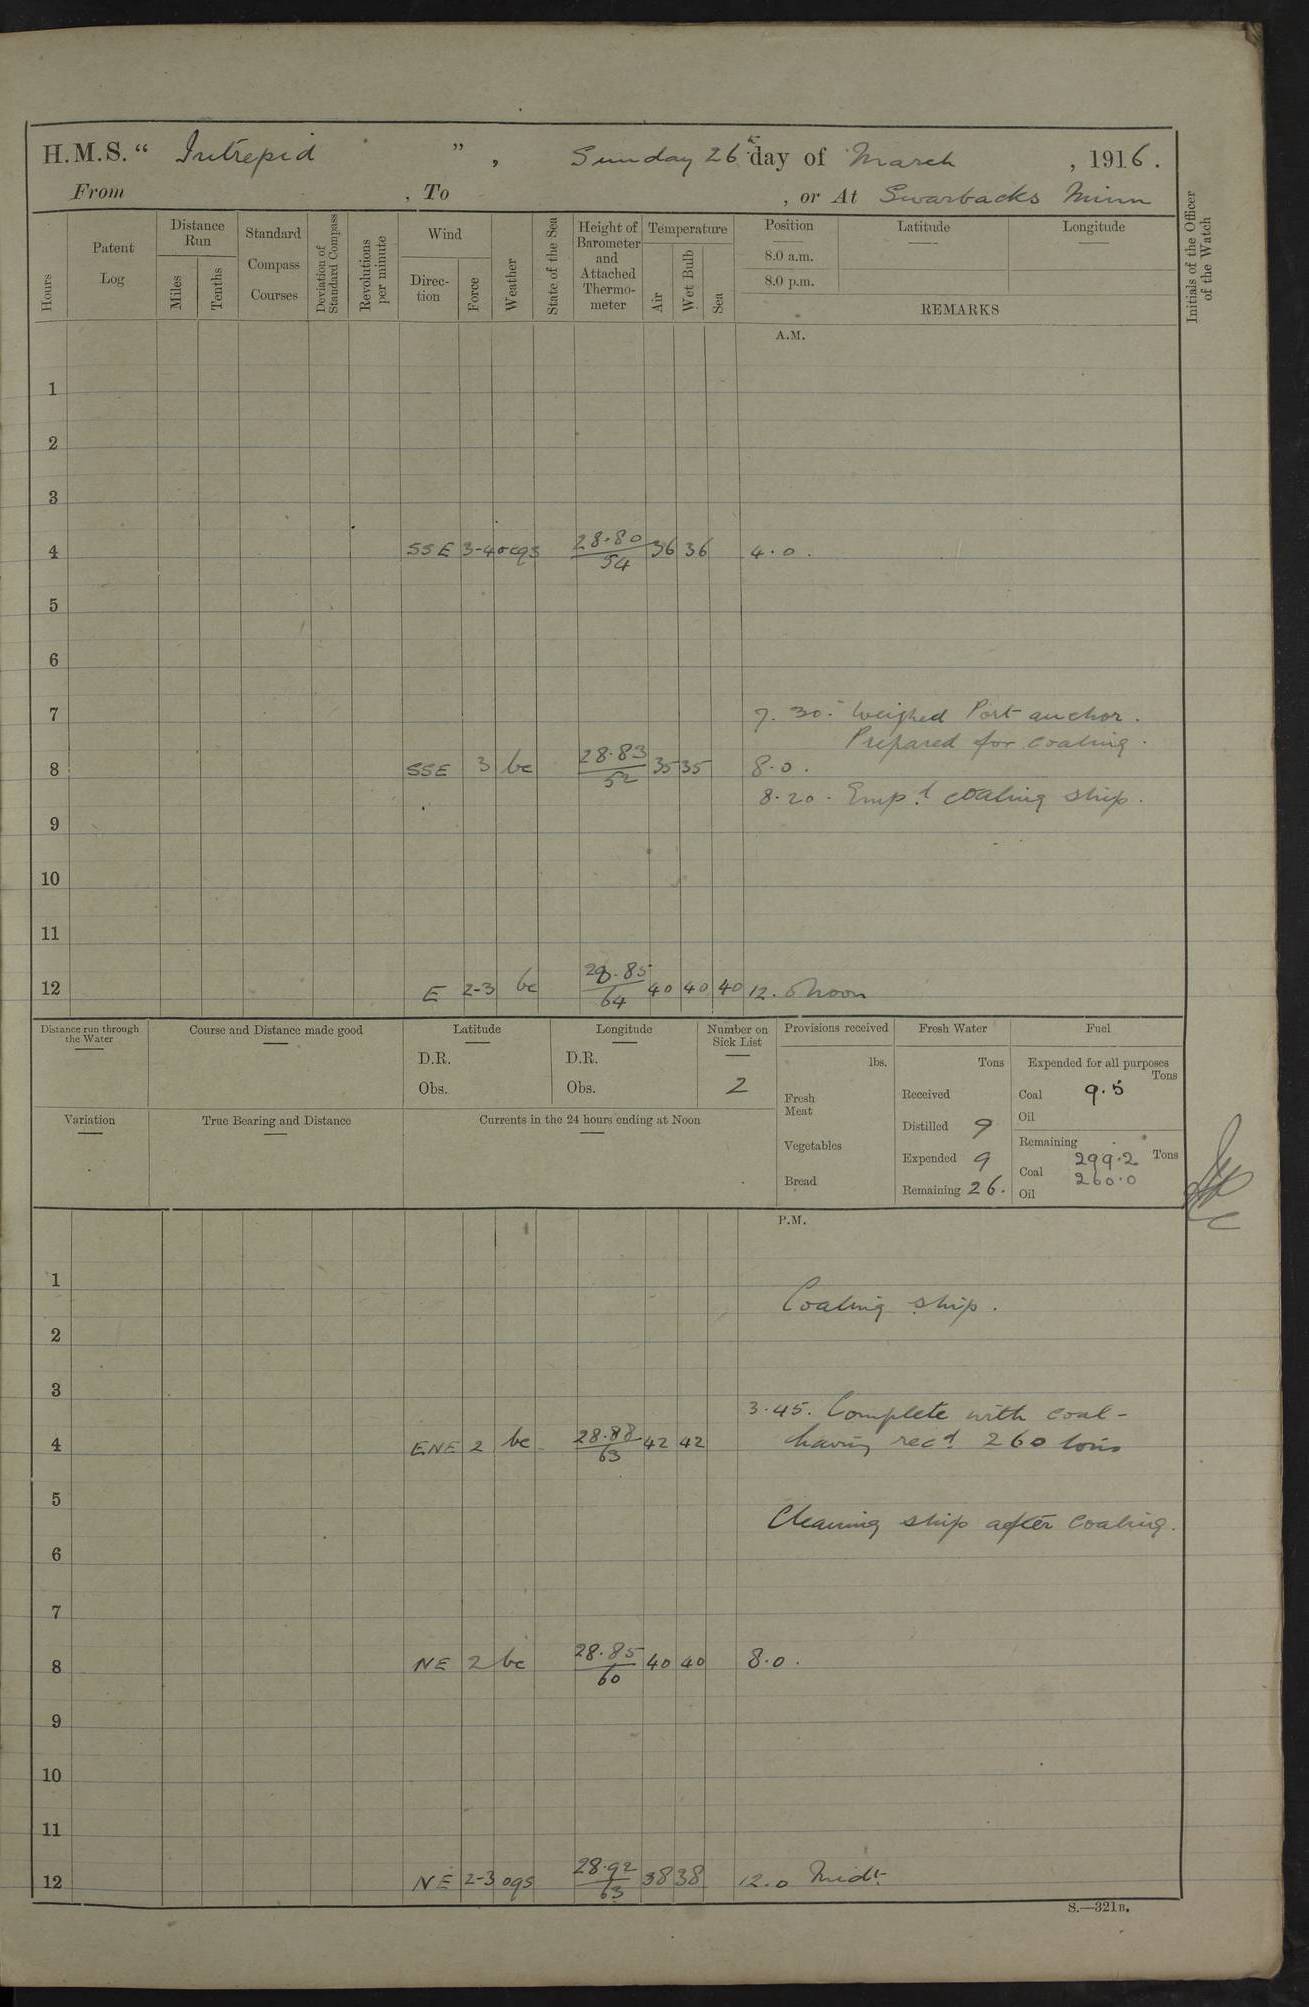 H.M.S. “ Intrepid ” , Sunday 26th day of March , 1916.
From , To , or At Swarbacks Minn
Hours
Patent Log
Distance Run
Miles
Tenths
Standard Compass Courses
Deviation of Standard Compass
Revolutions per minute
Wind
Direc-tion
Force
Weather
State of the Sea
Height of Barometer and Attached Thermo-meter
Temperature
Air
Wet Bulb
Sea
Position
8.0 a.m.
8.0 p.m.
Latitude
Longitude
REMARKS
Initials of the Officer of the Watch
A.M.
1
2
3
4 SSE 3-4 ocqs 28.80/54 36 36 4.0.
5
6
7 7.30. Weighed Port anchor.
Prepared for coaling.
8 SSE 3 bc 28.83/52 35 35 8.0.
8.20. Emp.d coaling ship.
9
10
11
12 E 2-3 bc 28.85/64 40 40 40 12.0 Noon
Distance run through the Water
Course and Distance made good
Latitude
D.R.
Obs.
Longitude
D.R.
Obs.
Number on Sick List
2
Variation
True Bearing and Distance
Currents in the 24 hours ending at Noon
Provisions received
lbs.
Fresh Meat
Vegetables
Bread
Fresh Water
Tons
Received
Distilled 9
Expended 9
Remaining 26.
Fuel
Expended for all purposes
Tons
Coal 9.5
Oil
Remaining
Tons
Coal 299.2
260.0
Oil
P.M.
1
Coaling ship.
2
3
3.45. Complete with coal-
4 ENE 2 bc 28.88/63 42 42 having recd 260 tons
5
Cleaning ship after coaling.
6
7
8 NE 2 bc 28.85/60 40 40 8.0.
9
10
11
12 NE 2-3 oqs 28.92/63 38 38 12.0 Midt.
S.—321B.